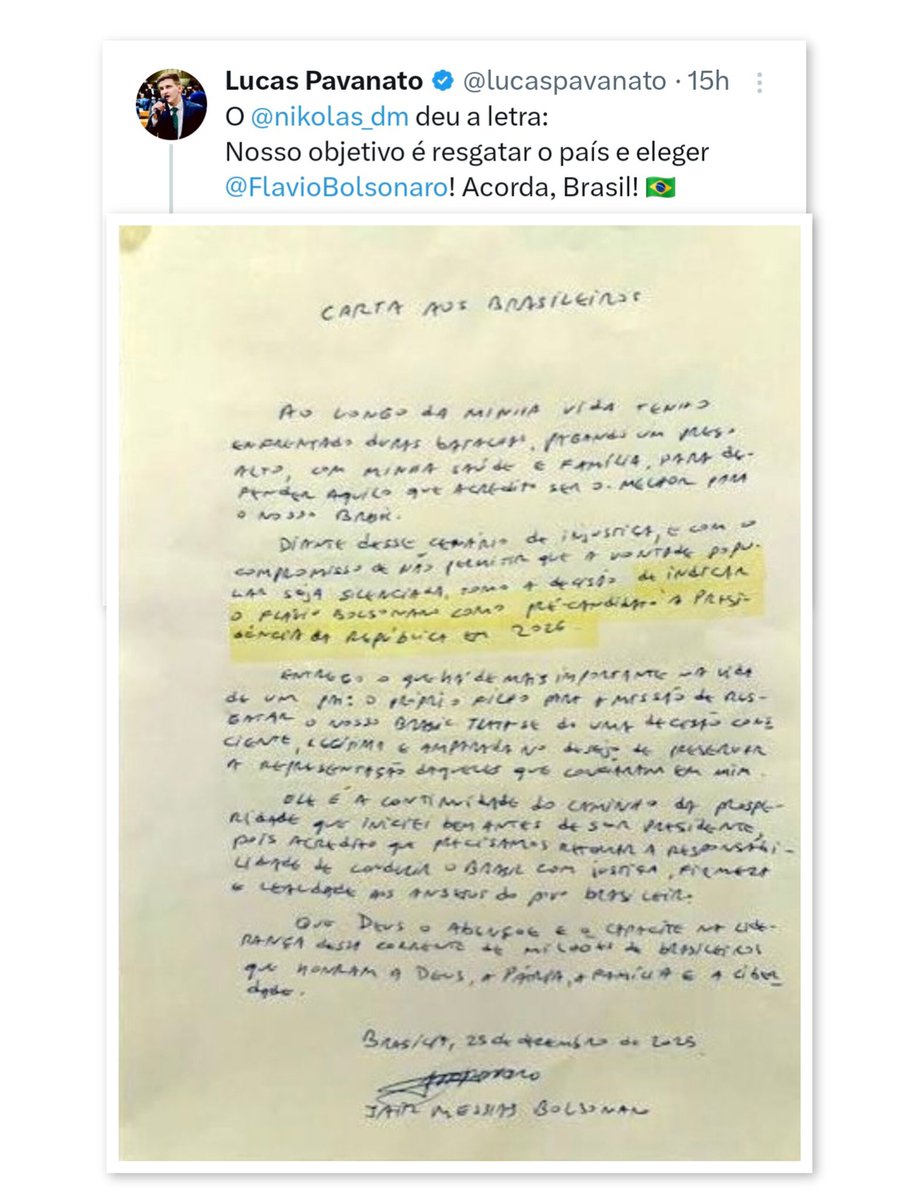 Lucas Pavanato @lucaspavanato · 15h
O @nikolas_dm deu a letra:
Nosso objetivo é resgatar o país e eleger
@FlavioBolsonaro! Acorda, Brasil! 🇧🇷
CARTA AOS BRASILEIROS
AO LONGO DA MINHA VIDA TENHO
ENFRENTADO DURAS BATALHAS, PAGANDO UM PREÇO
ALTO, COM MINHA SAÚDE E FAMÍLIA, PARA DE-
FENDER AQUILO QUE ACREDITO SER O MELHOR PARA
O NOSSO BRASIL.
DIANTE DESSE CENÁRIO DE INJUSTIÇA, E COM O
COMPROMISSO DE NÃO PERMITIR QUE A VONTADE POPU-
LAR SEJA SILENCIADA, TOMO A DECISÃO DE INDICAR
O FLÁVIO BOLSONARO COMO PRÉ-CANDIDATO À PRESI-
DÊNCIA DA REPÚBLICA EM 2026.
ENTREGO O QUE HÁ DE MAIS IMPORTANTE NA VIDA
DE UM PAI: O PRÓPRIO FILHO PARA A MISSÃO DE RES-
GATAR O NOSSO BRASIL. TRATA-SE DE UMA DECISÃO CONS
CIENTE, LEGÍTIMA E AMPARADA NO DESEJO DE PRESERVAR
A REPRESENTAÇÃO DAQUELES QUE CONFIARAM EM MIM.
ELE É A CONTINUIDADE DO CAMINHO DA PROSPE-
RIDADE QUE INICIEI BEM ANTES DE SER PRESIDENTE,
POIS ACREDITO QUE PRECISAMOS RETOMAR A RESPONSABI-
LIDADE DE CONDUZIR O BRASIL COM JUSTIÇA, FIRMEZA
E LEALDADE AOS ANSEIOS DO POVO BRASILEIRO.
QUE DEUS O ABENÇOE E O CAPACITE NA LIDE-
RANÇA DESSA CORRENTE DE MILHÕES DE BRASILEIROS
QUE HONRAM A DEUS, A PÁTRIA, A FAMÍLIA E A LIBER
DADE.
BRASÍLIA, 25 de dezembro de 2025
JAIR MESSIAS BOLSONARO